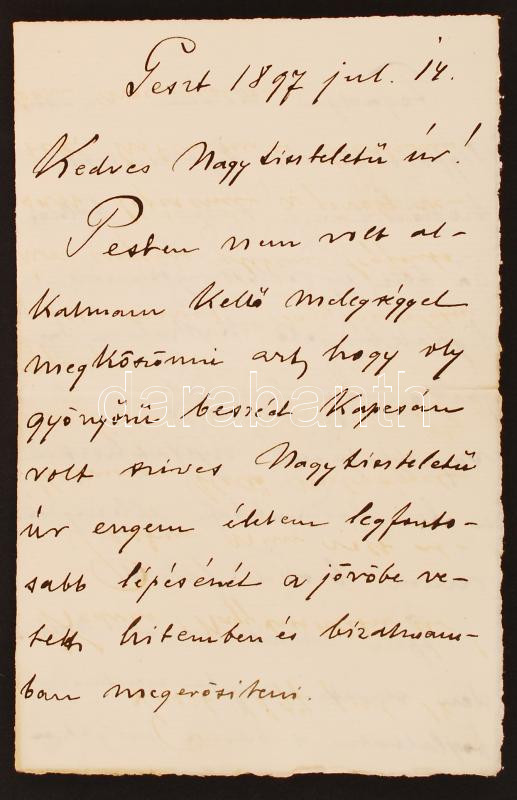 Geszt 1897 jul. 14.
Kedves Nagytiszteletű úr!
Pesten nem volt al-
kalmam kellő melegséggel
megköszönni azt, hogy oly
gyönyörű beszéd kapcsán
volt szives Nagytiszteletű
úr engem életem legfonto-
sabb lépésénél a jövőbe ve-
tett hitemben és bizalmam-
ban megerősíteni.
darabanth